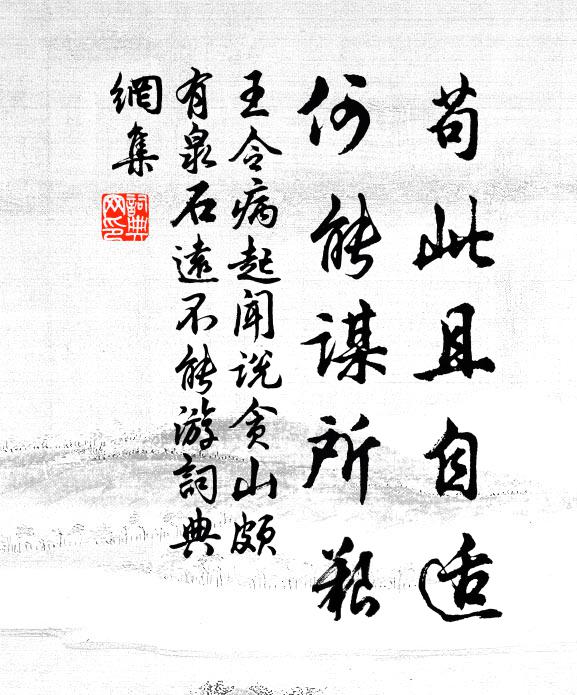 苟此且自适
何能谋所艱
王令病起闻说贪山頗
有泉石遠不能游詞典
網集
詞典
网印